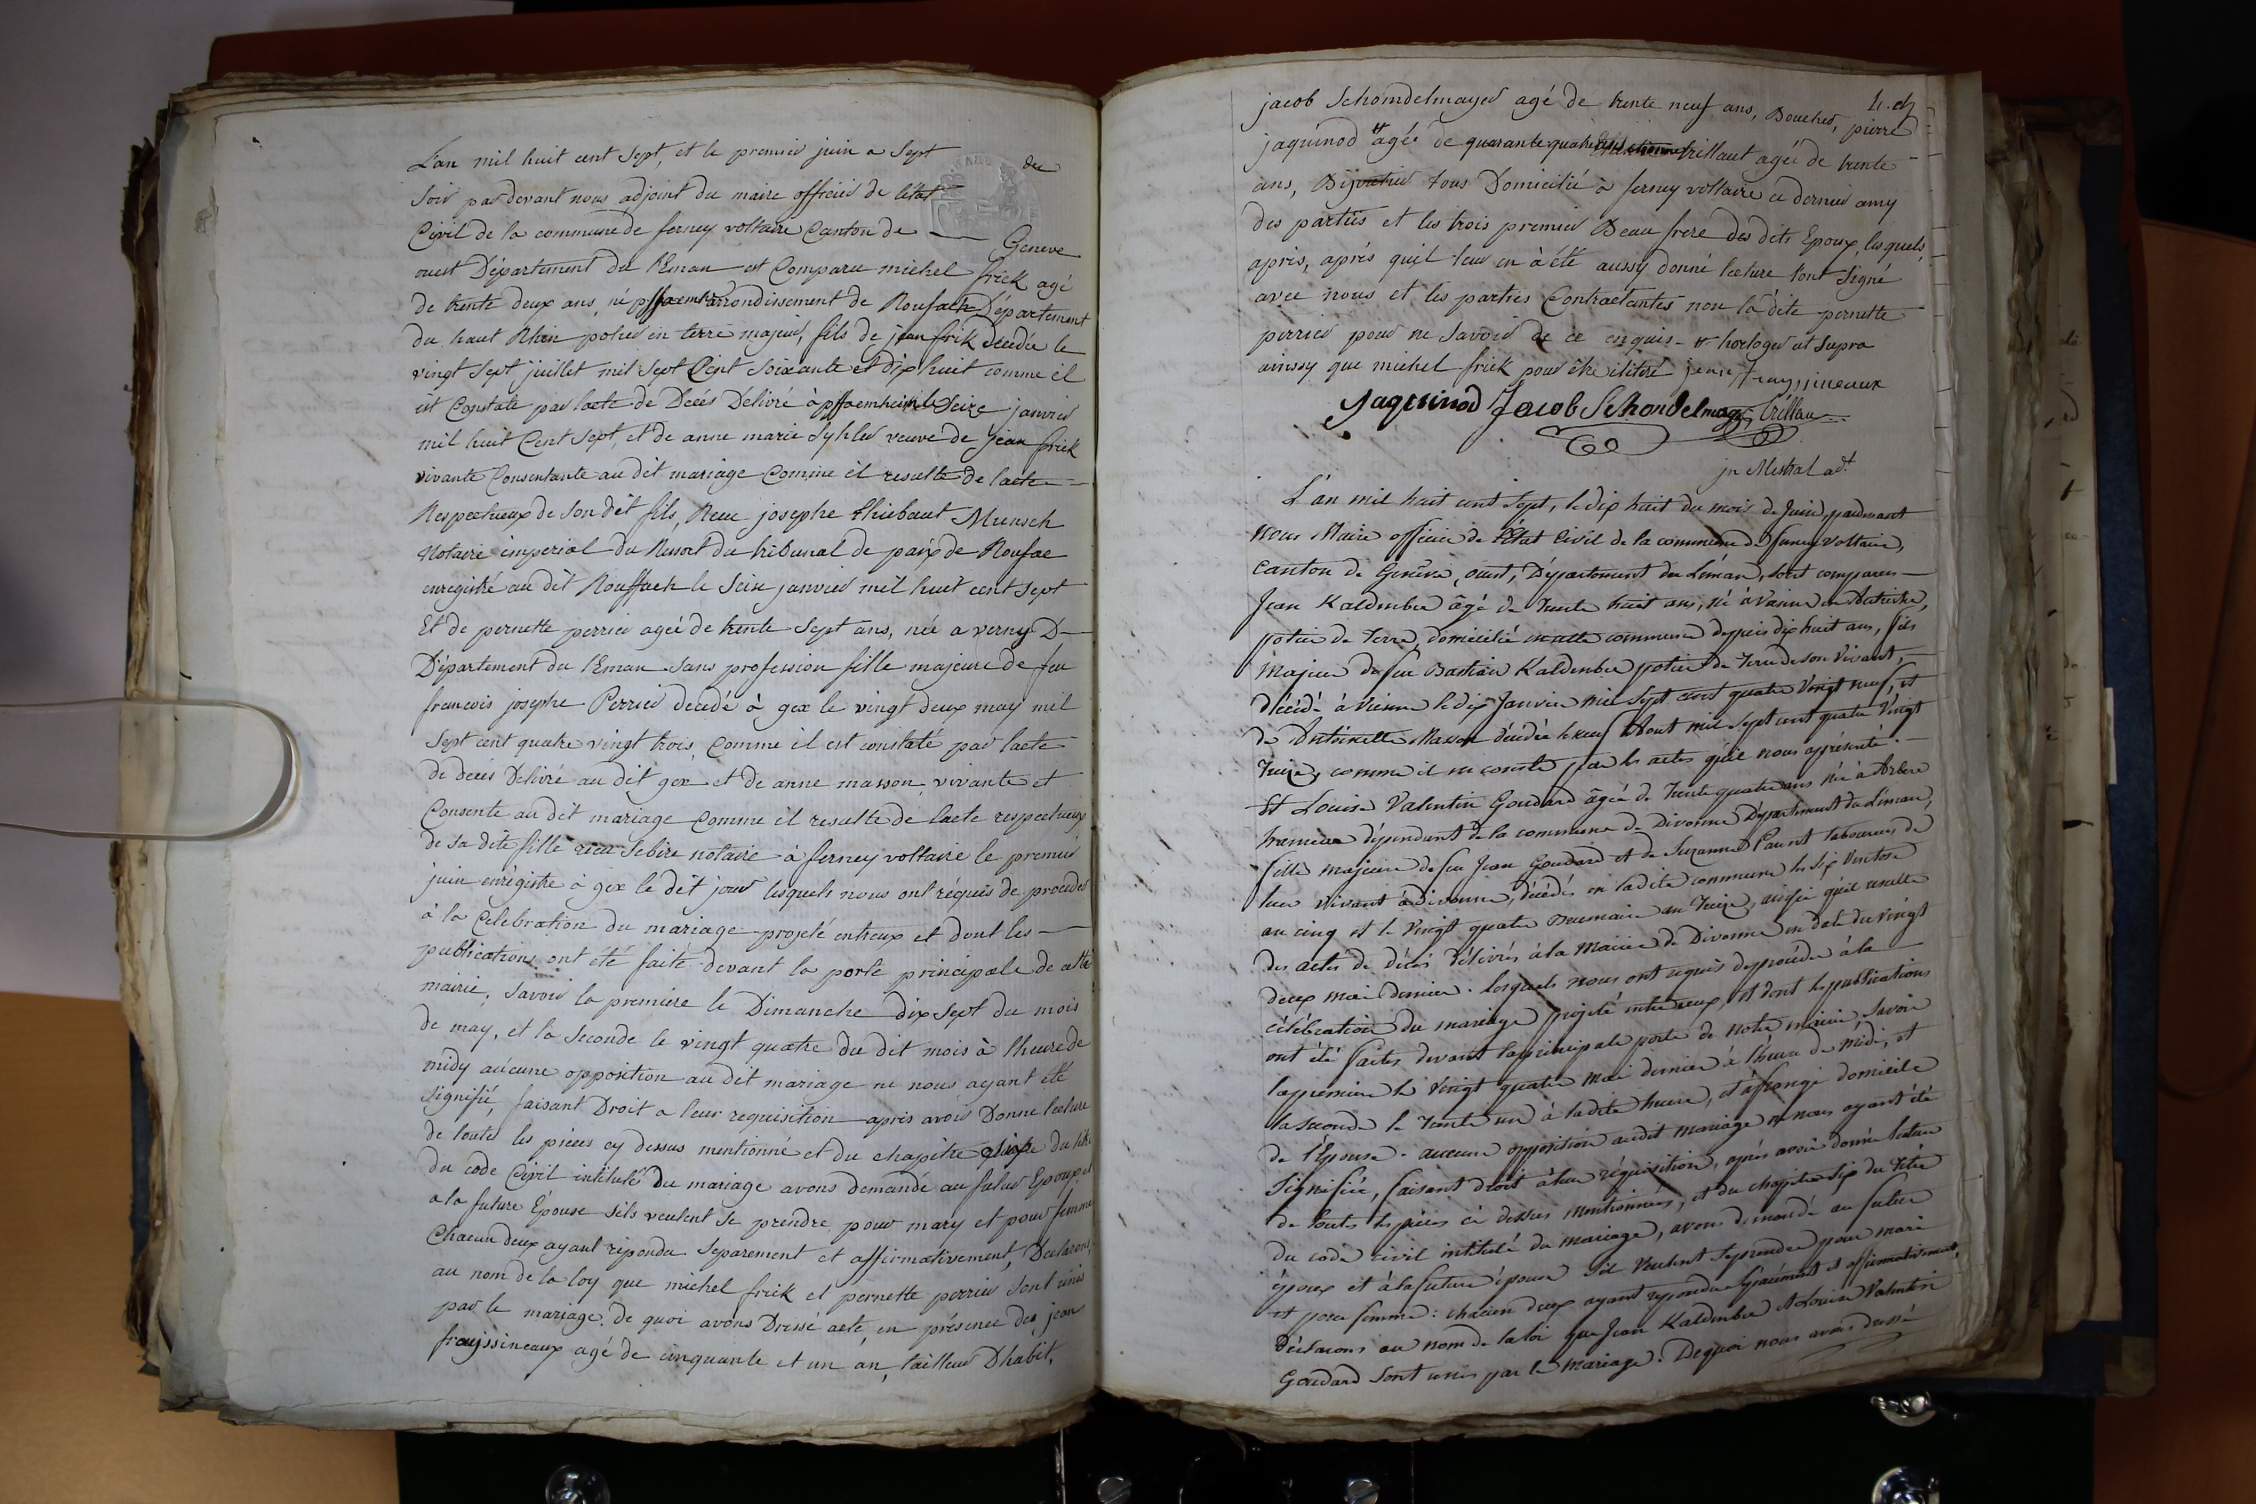 L'an mil huit cent sept, et le premier juin a sept du
soir par devant nous adjoint du maire officier de l'état
Civil de la commune de ferney voltaire Canton de — Geneve
ouest Département du l'Eman est Comparu michel frick agé
de trente deux ans, né arrondissement de Roufach Département
du haut Rhin potier en terre majeur, fils de jean frik decédé le
vingt sept juillet mil sept Cent soixante et dix huit comme il
est Constaté par lacte de Decès Délivré à pffaemheim le seize janvier
mil huit Cent sept, et de anne marie veuve de jean frick
vivante Consentante au dit mariage Comme il resulte de lacte —
Respectueux de son dit fils, Reçu josephe thiebaut Munsch
Notaire imperial du Ressort du tribunal de paix de Roufac
enregistré au dit Rouffach le Seize janvier mil huit cent sept
Et de pernette perrier ageé de trente sept ans, née a verny D—
Département du l'Eman sans profession fille majeure de feu
francois josephe Perrier decédé à gex le vingt deux may mil
sept cent quatre vingt trois Comme il est constaté par lacte
de decés Delivré au dit gex et de anne masson vivante et
Consente au dit mariage Comme il resulte de lacte respectueux
de sa dite fille recu Sebire notaire à ferney voltaire le premier
juin enrégistré à gex le dit jour lesquels nous ont réquis de proceder
à la Celebration du mariage projeté entreux et dont les —
publications ont été faite devant la porte principale de cette
mairie, Savoir la premiere le Dimanche dix sept du mois
de may, et la seconde le vingt quatre du dit mois à lheure de
midy aucune opposition au dit mariage ne nous ayant été
signifié, faisant Droit a leur requisition apris avoir Donné lecture
de toutes les pièces cy dessus mentionné et du chapitre du titre
du code Civil intitulé Du mariage avons demandé au futur Epoux et
a la future Épouse sils veulent se prendre pour mary et pour femme
Chacun deux ayant repondu separement et affirmativement, Declarons
au nom de la loy que michel frick et pernette perrier sont unis
par le mariage, de quoi avons Dressé acte en présence des jean
frayssineaux agé de cinquante et un an, tailleur Dhabit,
jacob Schomdelmayer agé de trente neuf ans, Boucher, pierre
jaquinod # agée de quarante quatre ans trillaut ageé de trente
ans, Bijoutier tous Domicilié à ferney voltaire ce dernier amy
des parties et les trois premier Beau frere des dits Epoux, lesquels
après, après quil leur en à été aussy donné lecture tont Signé
avec nous et les parties Contractantes non la dite pernette
perrier pour ne Savoir de ce enquis — # horloger ut supra
ainssy que michel frick pour être ilitéré jean frayssineaux
Jaquinod Jacob Schondelmayer trillau
jn Mestral adt
L'an mil huit cent sept, le dix huit du mois de Juin, pardevant
Nous Maire officier de l'État Civil de la commune de ferney voltaire,
Canton de Genêve, ouest, Département du Léman, sont comparus —
Jean Kaldenbre âgé de trente huit ans, né à Vienne en Autriche,
potier de terre, domicilié en cette commune depuis dix huit ans, fils
Majeur de feu Bastian Kaldenbre potier de terre de son Vivant, —
décédé à Vienne le dix Janvier mil sept cent quatre Vingt neuf, et
de Antoinette Masson décédée le neuf Aout mil sept cent quatre Vingt
treize, comme il en conste par les actes qu'il nous a présenté. —
Et Louise Valentin Goudard âgée de trente quatre ans née à Arbere
hameau dépendant de la commune de Divonne Département du Léman,
fille majeure de feu Jean Goudard et de Suzanne Pannt laboureurs de
leur vivant à Divonne, décédés en ladite commune les six Ventose
an cinq et le Vingt quatre Brumaire an treize, ainsi qu'il resulte
des actes de décès délivrés à la Mairie de Divonne en date du vingt
deux mai dernier. lesquels nous ont requis de procéder à la —
célébration du mariage projeté entre eux, et dont les publications
ont été faites devant la principale porte de notre mairie, Savoir
la premiere le Vingt quatre mai dernier à l'heure de midi, et
la seconde le trente un à ladite heure, domicile
de l'Epouse. aucune opposition audit mariage ne nous ayant été
Signifiée, faisant droit à leur réquisition, après avoir donné lecture
de toutes les pièces ci dessus mentionnées, et du chapitre Six du titre
du code civil intitulé du mariage, avons demandé au futur
époux et à la future épouse s'il Veulent se prendre pour mari
et pour femme: chacun deux ayant repondu séparément et affirmativement,
Déclarons au nom de la loi que Jean Kaldenbre et Louise Valentin
Goudard sont unis par le mariage. De quoi nous avons dressé